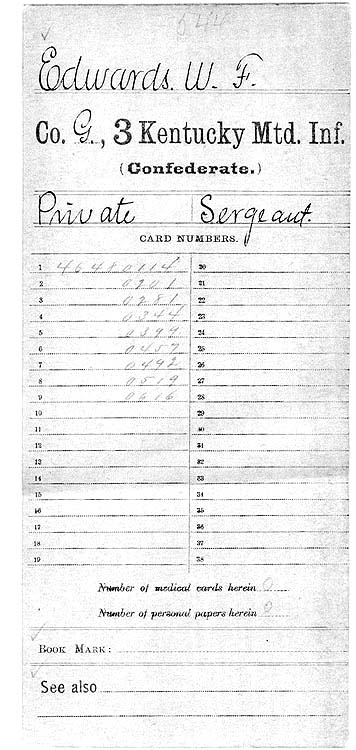 544
Edwards. W. F.
Co. G., 3 Kentucky Mtd. Inf.
(Confederate.)
Private Sergeant.
CARD NUMBERS.
1 46480114 20
2 0201 21
3 0281 22
4 0344 23
5 0399 24
6 0457 25
7 0492 26
8 0519 27
9 0616 28
10 29
11 30
12 31
13 32
14 33
15 34
16 35
17 36
18 37
19 38
Number of medical cards herein 0
Number of personal papers herein 0
BOOK MARK:
See also